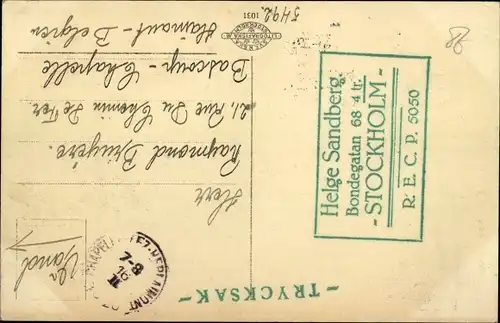 Herr
Raymond Bruyère.
21, Rue Du Chemin De Fer
Bascoup - Chapelle
Hainaut - Belgien
5492.
1031
88
Helge Sandberg.
Bondegatan 68 4 tr.
- STOCKHOLM -
R. E. C. P. 5050
- TRYCKSAK -
7-8